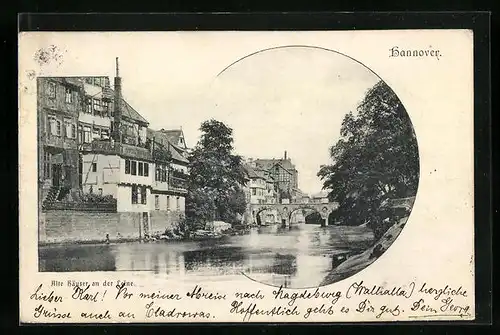 Hannover.
Alte Häuser an der Leine.
Lieber Karl! Vor meiner Abreise nach Magdeburg (Walhalla) herzliche
Grüsse auch an Hoffentlich geht es Dir gut. Dein Georg.